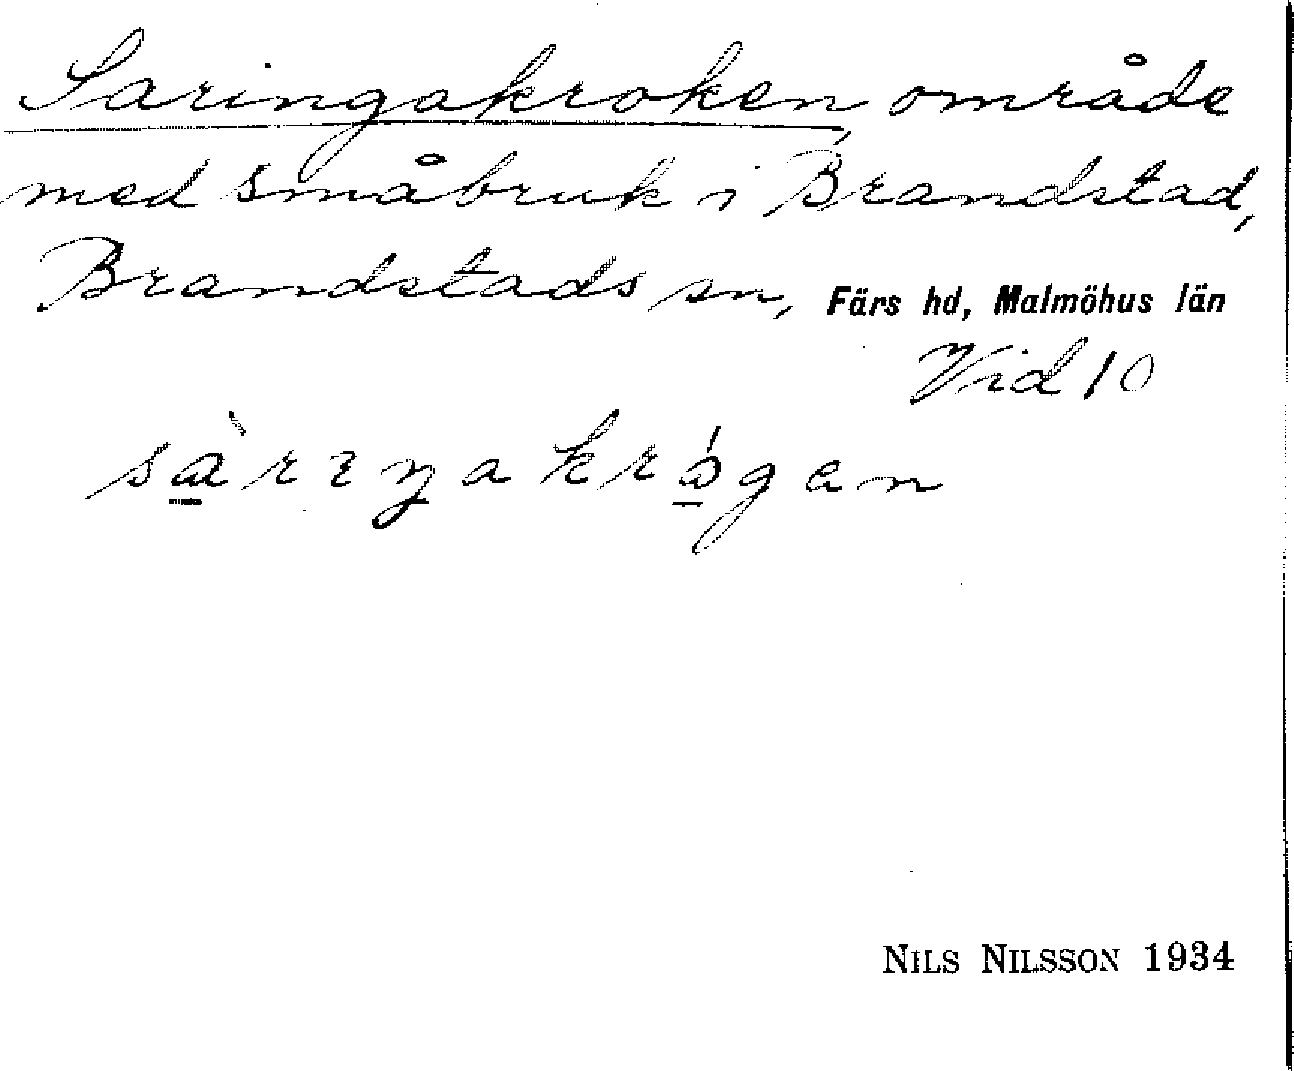 Saringakroken, område
med småbruk i Brandstad,
Brandstads sn, Färs hd, Malmöhus län
Vid 10
NILS NILSSON 1934